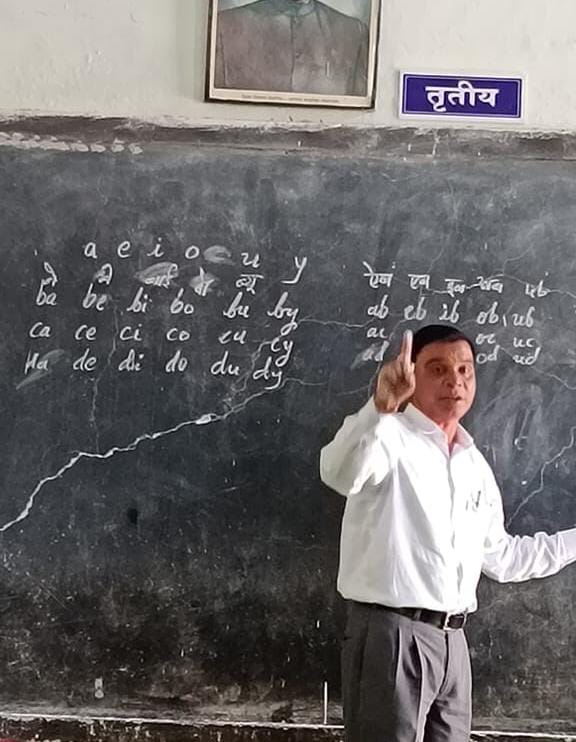 तृतीय
a e i o u y
बे बी बाई बो ब्यू
ba be bi bo bu by
ca ce ci co cu cy
da de di do du dy
ऐब एब इब
ab eb ib ob ub
ac oc uc
ad od ud